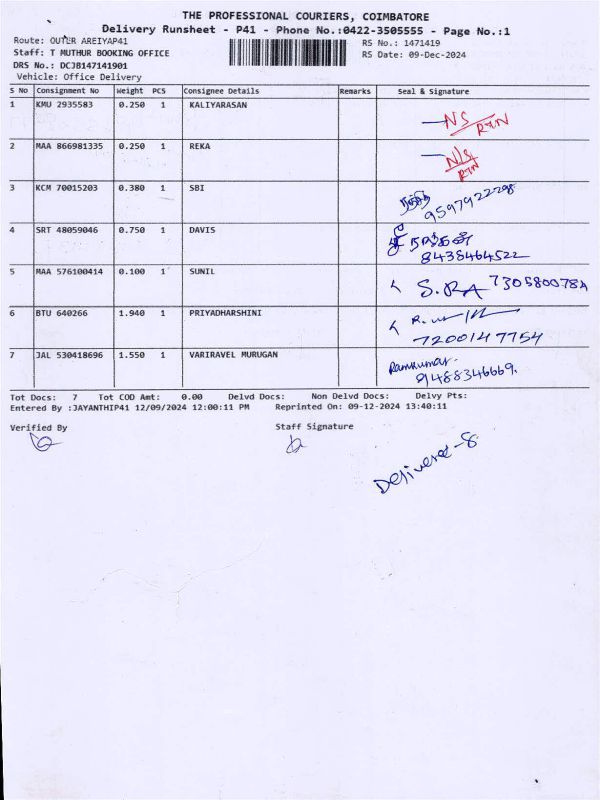 THE PROFESSIONAL COURIERS, COIMBATORE
Delivery Runsheet - P41 - Phone No.:0422-3505555 - Page No.:1
Route: OUTER AREIYAP41 RS No.: 1471419
Staff: T MUTHUR BOOKING OFFICE RS Date: 09-Dec-2024
DRS No.: DCJB147141901
Vehicle: Office Delivery
S No Consignment No Weight PCS Consignee Details Remarks Seal & Signature
1 KMU 2935583 0.250 1 KALIYARASAN N/S
RTN
2 MAA 866981335 0.250 1 REKA N/S
RTN
3 KCM 70015203 0.380 1 SBI
9597922298
4 SRT 48059046 0.750 1 DAVIS
8438464522
5 MAA 576100414 0.100 1 SUNIL S.RA 730580078
6 BTU 640266 1.940 1 PRIYADHARSHINI
7200147754
7 JAL 530418696 1.550 1 VARIRAVEL MURUGAN Ramkumar.
9488346669.
Tot Docs: 7 Tot COD Amt: 0.00 Delvd Docs: Non Delvd Docs: Delvy Pts:
Entered By :JAYANTHIP41 12/09/2024 12:00:11 PM Reprinted On: 09-12-2024 13:40:11
Verified By Staff Signature